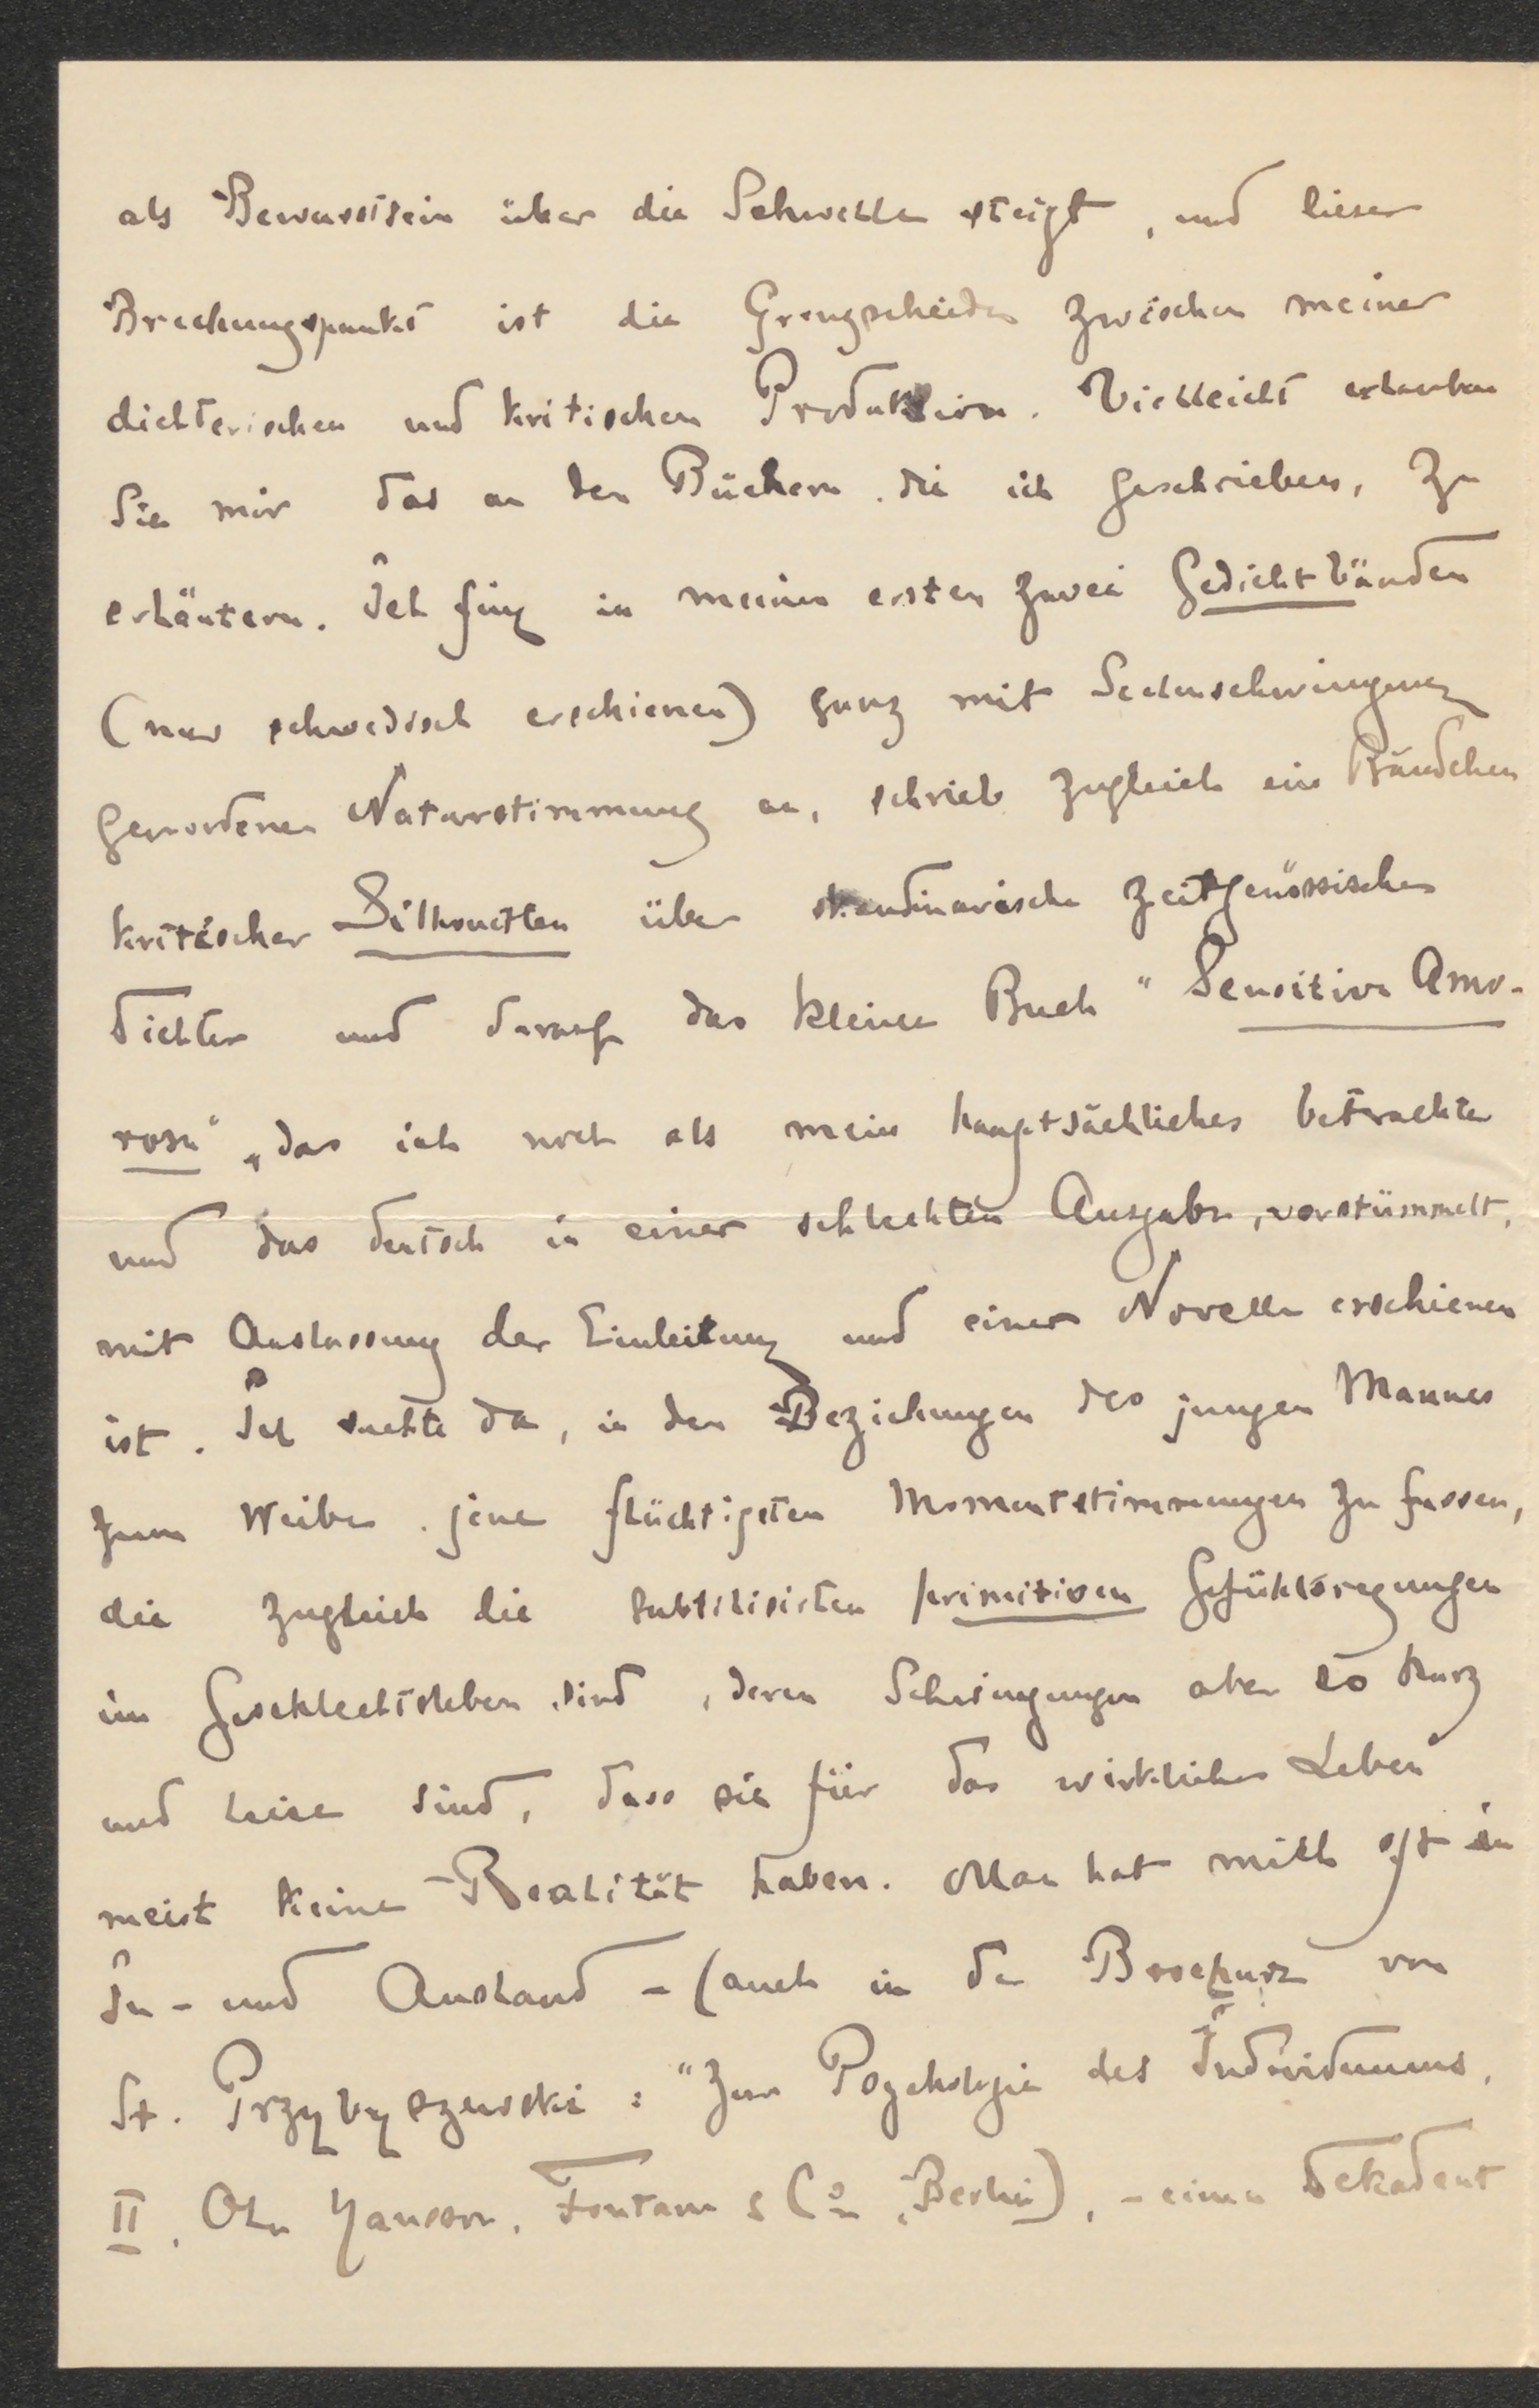 als Bewusstsein über die Schwelle steigt, und dieser
Brechungspunkt ist die Grenzscheide zwischen meiner
dichterischen und kritischen Produktion. Vielleicht erlauben
Sie mir das an den Büchern, die ich geschrieben, zu
erläutern. Ich fing in meinen ersten zwei Gedichtbänden
(nur schwedisch erschienen) ganz mit Seelenschwingung
gewordener Naturstimmung an, schrieb zugleich ein Bändchen
kritischer Silhouetten über skandinavische zeitgenössische
Dichter und darauf das kleine Buch "Sensitiva Amo-
rosa", das ich noch als mein hauptsächliches betrachte
und das deutsch in einer schlechten Ausgabe, verstümmelt,
mit Auslassung der Einleitung und einer Novelle erschienen
ist. Ich suchte da, in den Beziehungen des jungen Mannes
zum Weibe, jene flüchtigsten Momentstimmungen zu fassen,
die zugleich die subtilisirten primitiven Gefühlsregungen
im Geschlechtsleben sind, deren Schwingungen aber so kurz
und leise sind, dass sie für das wirkliche Leben
meist keine Realität haben. Man hat mich oft in
In- und Ausland - (auch in der Brochure von
St. Przybyszewski: "Zur Psychologie des Individuums,
II, Ola Hansson, Fontane & Co, Berlin), - einen Dekadent